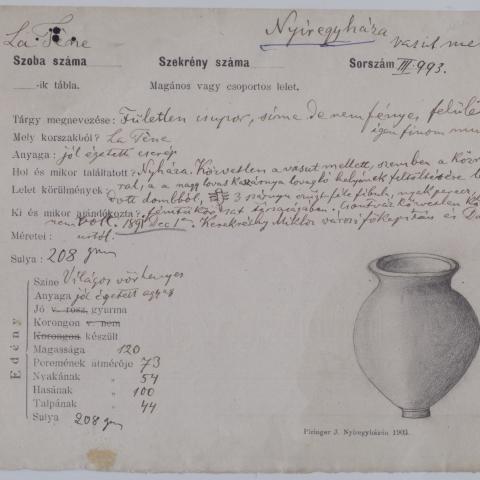 La Tène
Nyíregyháza
vasut me
Szoba száma
Szekrény száma
Sorszám III 993.
-ik tábla.
Magános vagy csoportos lelet.
Tárgy megnevezése: Fületlen csupor, síma de nem fényes felület
igen finom
Mely korszakból? La Tène
Anyaga: jól égetett cserép
Hol és mikor találtatott? Nyháza. Közvetlen a vasut mellett, szemben a
Lelet körülmények a nagy lovas kaszárnya lovagló helyének feltöltésére
dombból, 3 szárnyu fibula, nyakperec,
Ki és mikor ajándékozta? társaságában. Csontváz közvetlen
1891 dec 1 Kerekréthy Miklós városi főkapitány és
Méretei:
Sulya: 208 gm
Edény
Színe Világos vörhenyes
Anyaga jól égetett agyag
Jó v. rosz gyurma
Korongon v. nem
Korongon készült
Magassága 120
Peremének átmérője 73
Nyakának " 54
Hasának " 100
Talpának " 44
Sulya 208 gm
Piringer J. Nyíregyházán 1903.